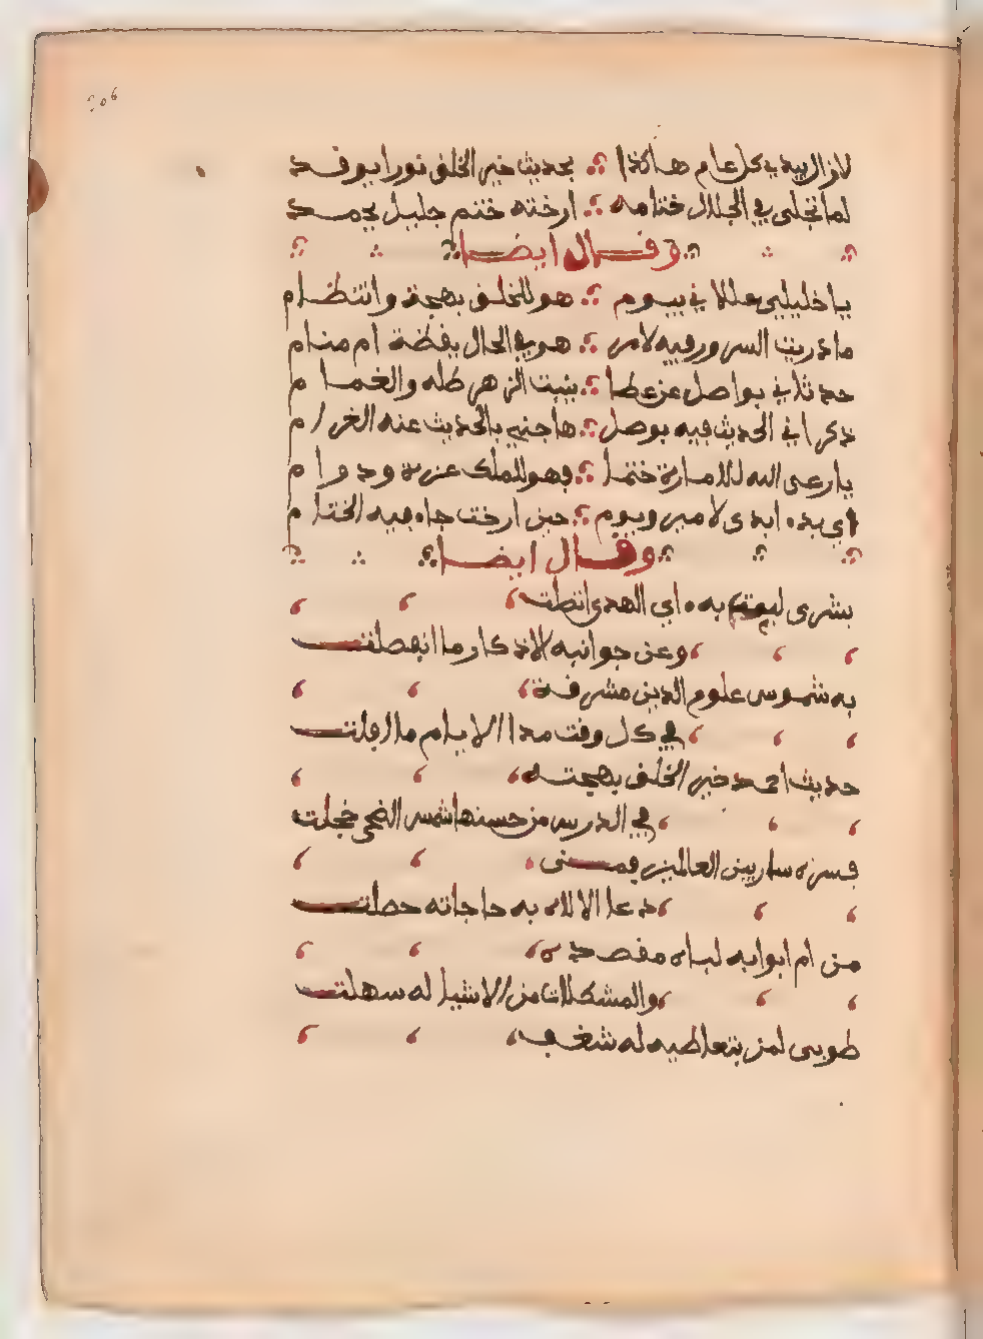 206
لازال يبدي كل عام هاكذا ∴ بحديث خير الخلق نورا يوقد
لما تجلى في الجلال ختامه ∴ ارخته ختم جليل يحمد
وقال ايضا
يا خليلي عللاني بيوم ∴ هو للخلق بهجة وانتظام
ما دريت السرور فيه لامر ∴ هو في الحال يقظة ام منام
حدثاني بواصل عن عطا ∴ ينبت الزهر طله والغمام
ذكراني الحديث فيه بوصل ∴ هاجني بالحديث عنه الغرام
يا رعى الله للامارة ختما ∴ فهو للملك عزة ودوام
اي بدء ابدى لامير ويوم ∴ حين ارخت جاه فيه الختام
وقال ايضا
بشرى لبيت به ءاي الهدى اتصلت
وعن جوانبه الاذكار ما انفصلت
به شموس علوم الدين مشرفة
في كل وقت مدا الايام ما افلت
حديث احمد خير الخلق بهجته
في الدرس من حسنها شمس الضحى خجلت
فسره سار بين العالمين فمنى
دعا الالاه به حاجاته حصلت
من ام ابوابه لباه مقصده
والمشكلات من الاشيا له سهلت
طوبى لمن يتعاطيه له شغف